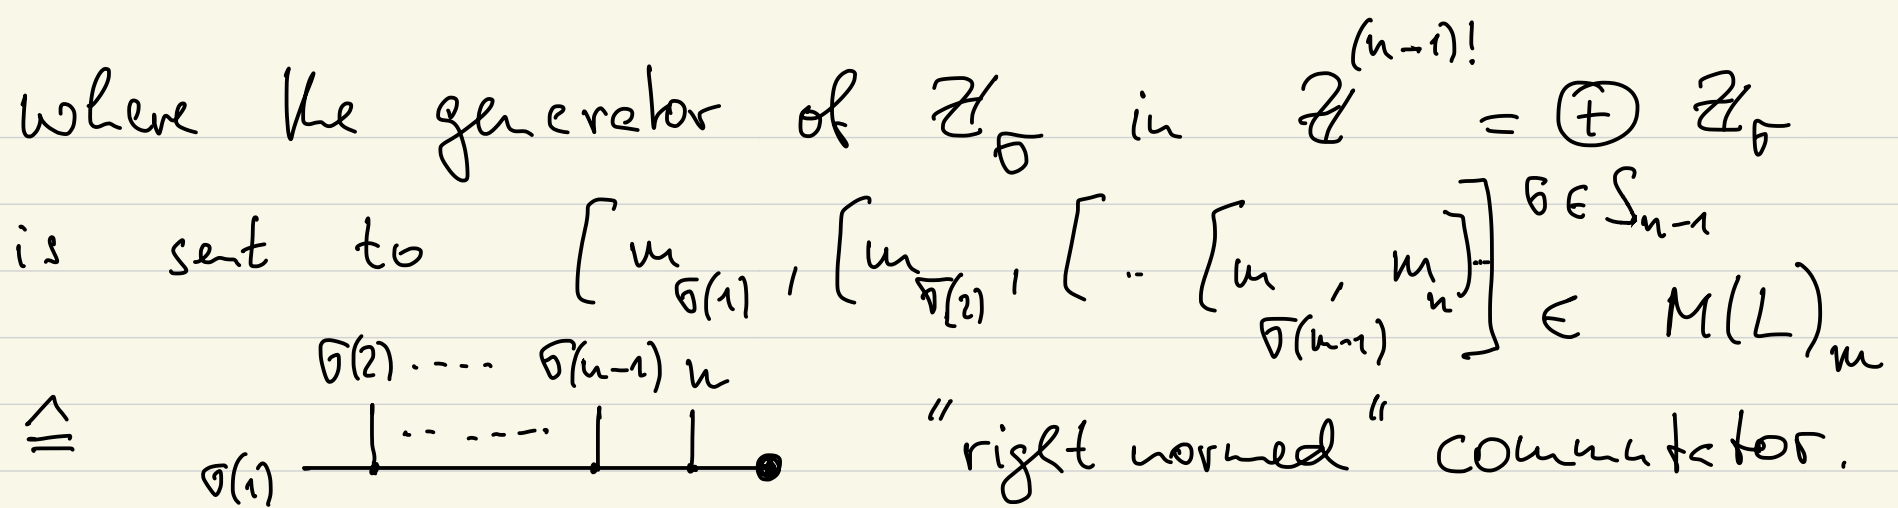 where the generator of ℤ_σ in ℤ^{(n-1)!} = ⊕ ℤ_σ
σ ∈ S_{n-1}
is sent to [m_{σ(1)}, [m_{σ(2)}, [.. [m_{σ(n-1)}, m_n]...] ∈ M(L)_n
σ(2) ..... σ(n-1) n
≙ σ(1) "right normed" commutator.